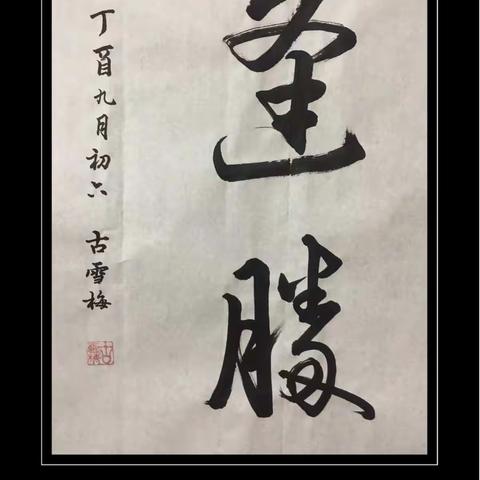 逢勝
丁酉九月初六 古雪梅